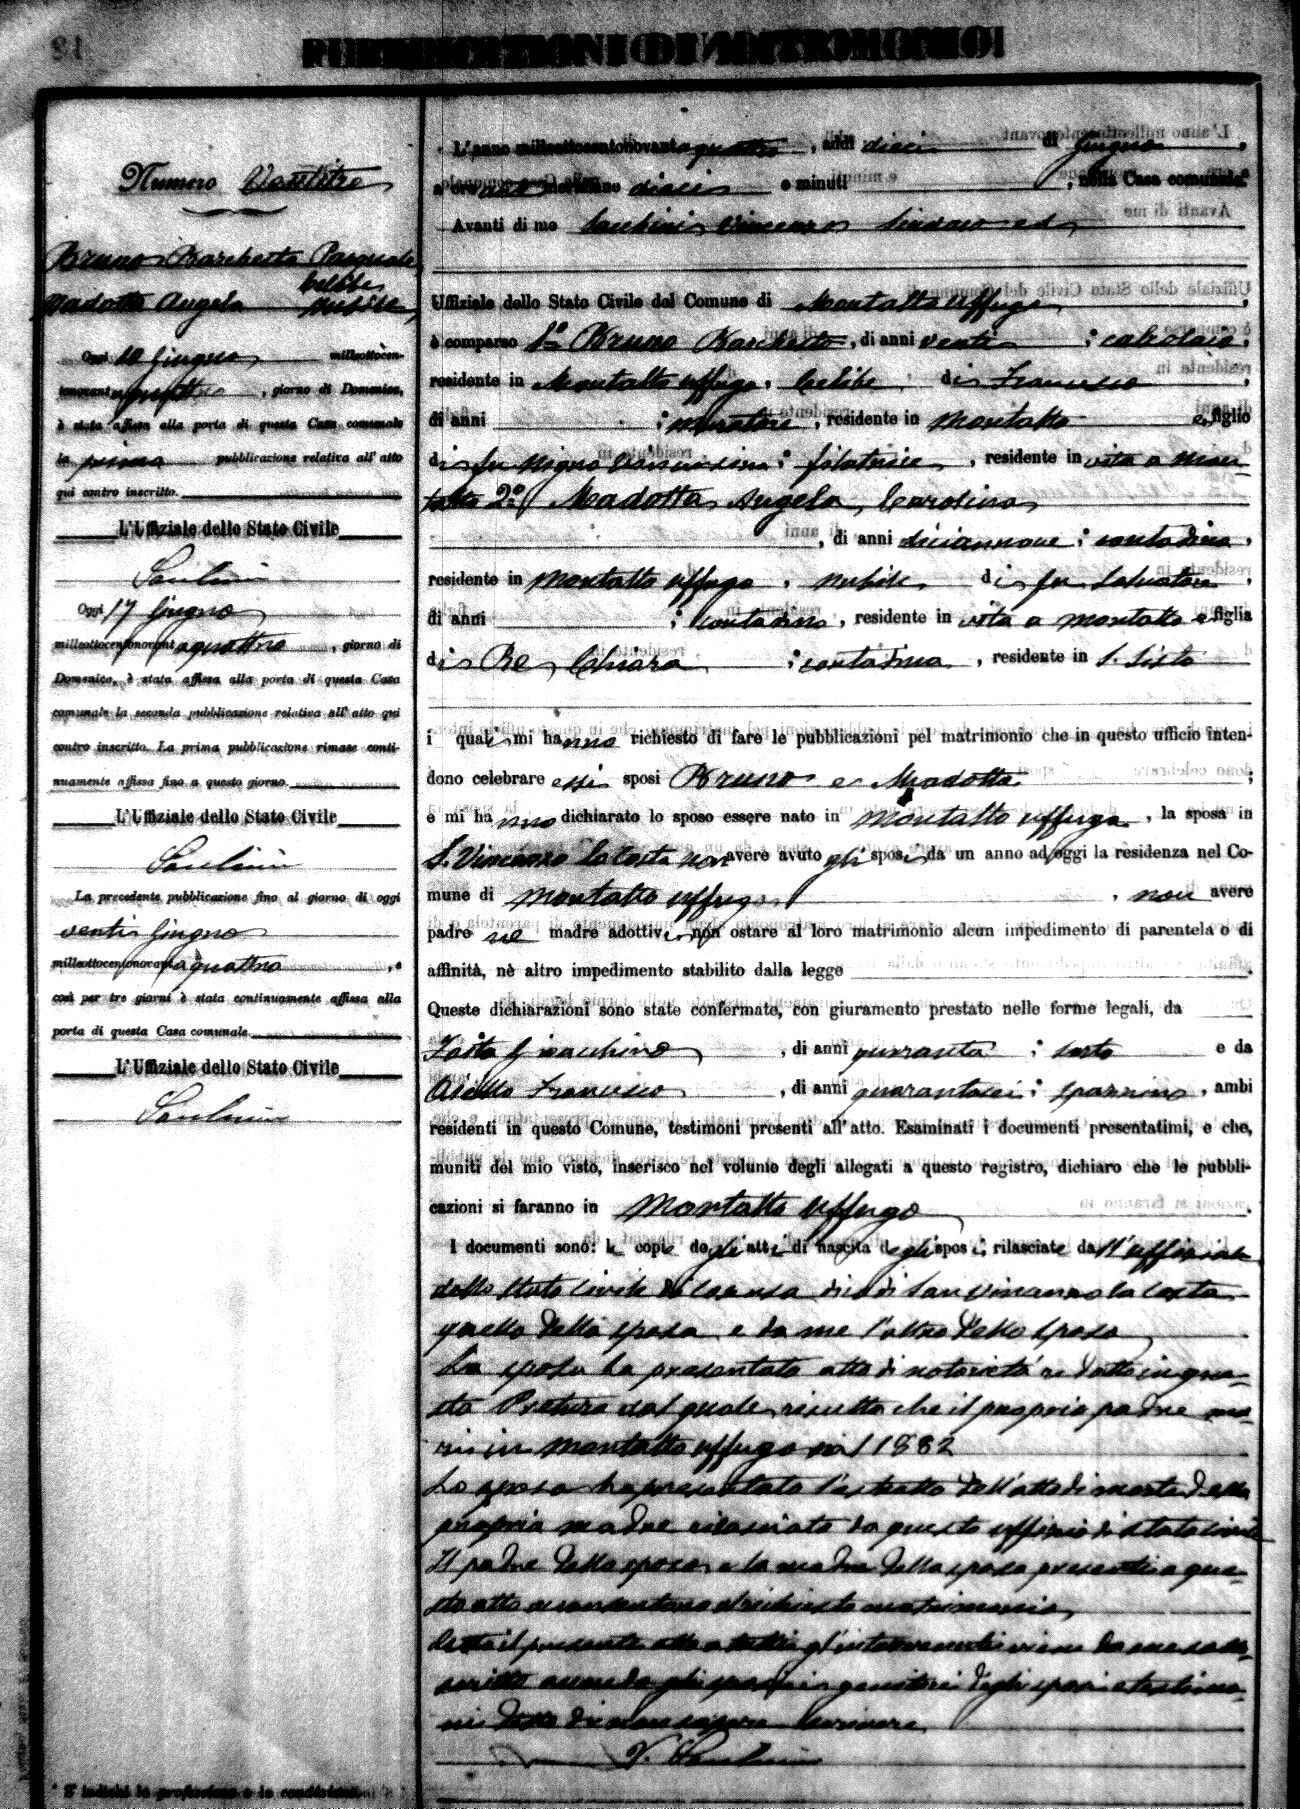 PUBBLICAZIONI DI MATRIMONIO
Numero Ventitre
Bruno Pasquale
celibe
Madotta Angela nubile
Oggi 10 Giugno milleottocen-
tonovantaquattro, giorno di Domenica,
è stata affissa alla porta di questa Casa comunale
la prima pubblicazione relativa all'atto
qui contro inscritto.
L'Uffiziale dello Stato Civile
Oggi 17 Giugno
milleottocentonovantaquattro, giorno di
Domenica, è stata affissa alla porta di questa Casa
comunale la seconda pubblicazione relativa all'atto qui
contro inscritto. La prima pubblicazione rimase conti-
nuamente affissa fino a questo giorno.
L'Uffiziale dello Stato Civile
La precedente pubblicazione fino al giorno di oggi
venti Giugno
milleottocentonovantaquattro, e
così per tre giorni è stata continuamente affissa alla
porta di questa Casa comunale.
L'Uffiziale dello Stato Civile
L'anno milleottocentonovantaquattro, addì dieci di Giugno,
a ore anti meridiane dieci e minuti , nella Casa comunale.
Avanti di me Vincenzo Sindaco ed
Uffiziale dello Stato Civile del Comune di Montalto Uffugo,
è comparso 1º Bruno, di anni venti; calzolaio,
residente in Montalto Uffugo, celibe di Francesco,
di anni ; muratore, residente in Montalto e figlio
di fu; filatrice, residente in vita a Mon-
talto 2º Madotta Angela Carolina
, di anni diciannove; contadina,
residente in Montalto Uffugo, nubile di fu Salvatore,
di anni ; contadino, residente in vita a Montalto e figlia
di Re Chiara ; contadina, residente in S. Sisto
i quali mi hanno richiesto di fare le pubblicazioni pel matrimonio che in questo ufficio inten-
dono celebrare essi sposi Bruno e Madotta;
e mi hanno dichiarato lo sposo essere nato in Montalto Uffugo, la sposa in
S. Vincenzo la Costa non avere avuto gli sposi da un anno ad oggi la residenza nel Co-
mune di Montalto Uffugo, non avere
padre nè madre adottivi, non ostare al loro matrimonio alcun impedimento di parentela o di
affinità, nè altro impedimento stabilito dalla legge.
Queste dichiarazioni sono state confermate, con giuramento prestato nelle forme legali, da
Gioacchino, di anni quaranta; sarto e da
Aiello Francesco, di anni quarantasei; spazzino, ambi
residenti in questo Comune, testimoni presenti all'atto. Esaminati i documenti presentatimi, e che,
muniti del mio visto, inserisco nel volume degli allegati a questo registro, dichiaro che le pubbli-
cazioni si faranno in Montalto Uffugo.
I documenti sono: le copie degli atti di nascita degli sposi; rilasciate dall'uffiziale
dello stato civile di San Vincenzo la Costa
quello della sposa e da me l'altro dello sposo
La sposa ha presentato atto di notorietà redatto in que-
sta Pretura dal quale risulta che il proprio padre mo-
rì in Montalto Uffugo nel 1882
Lo sposo ha presentato l'estratto dell'atto di morte della
propria madre rilasciato da questo uffizio di stato civile
Il padre dello sposo e la madre della sposa presenti a que-
sto atto acconsentono al richiesto matrimonio
Letto il presente atto a tutti gl'intervenuti viene da me sotto-
scritto avendo gli sposi i genitori degli sposi e testimo-
ni detto di non sapere scrivere
* S'indichi la professione o la condizione.